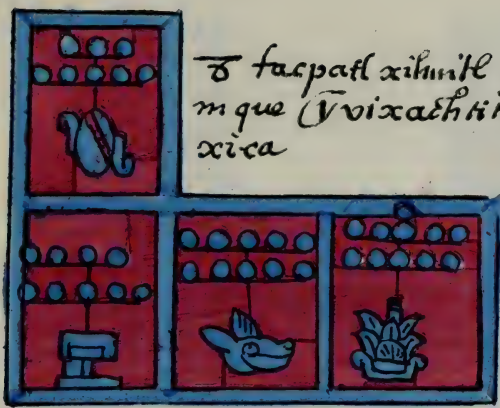 ꝺ tacpatl xihuitl
m que (ȳ vixachti
xica